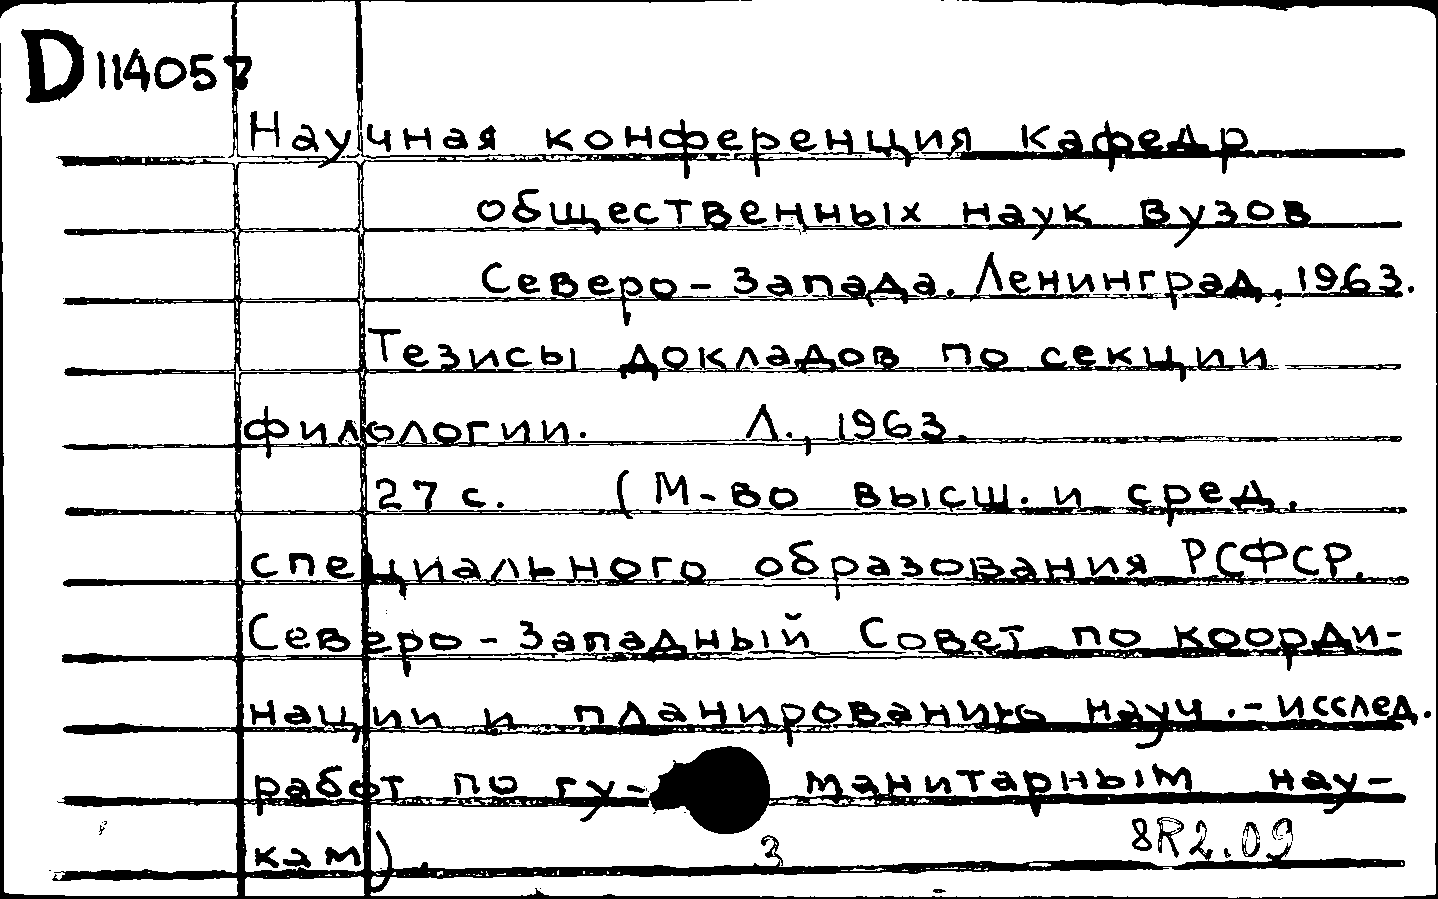 D 114057
Научная конференция кафедр
общественных наук вузов
Северо-Запада. Ленинград, 1963.
Тезисы докладов по секции
филологии. Л., 1963.
27 с. (М-во высш. и сред.
специального образования РСФСР.
Северо-Западный Совет по коорди-
нации и планированию науч.-исслед.
работ по гу- манитарным нау-
кам).
3 8R2.09